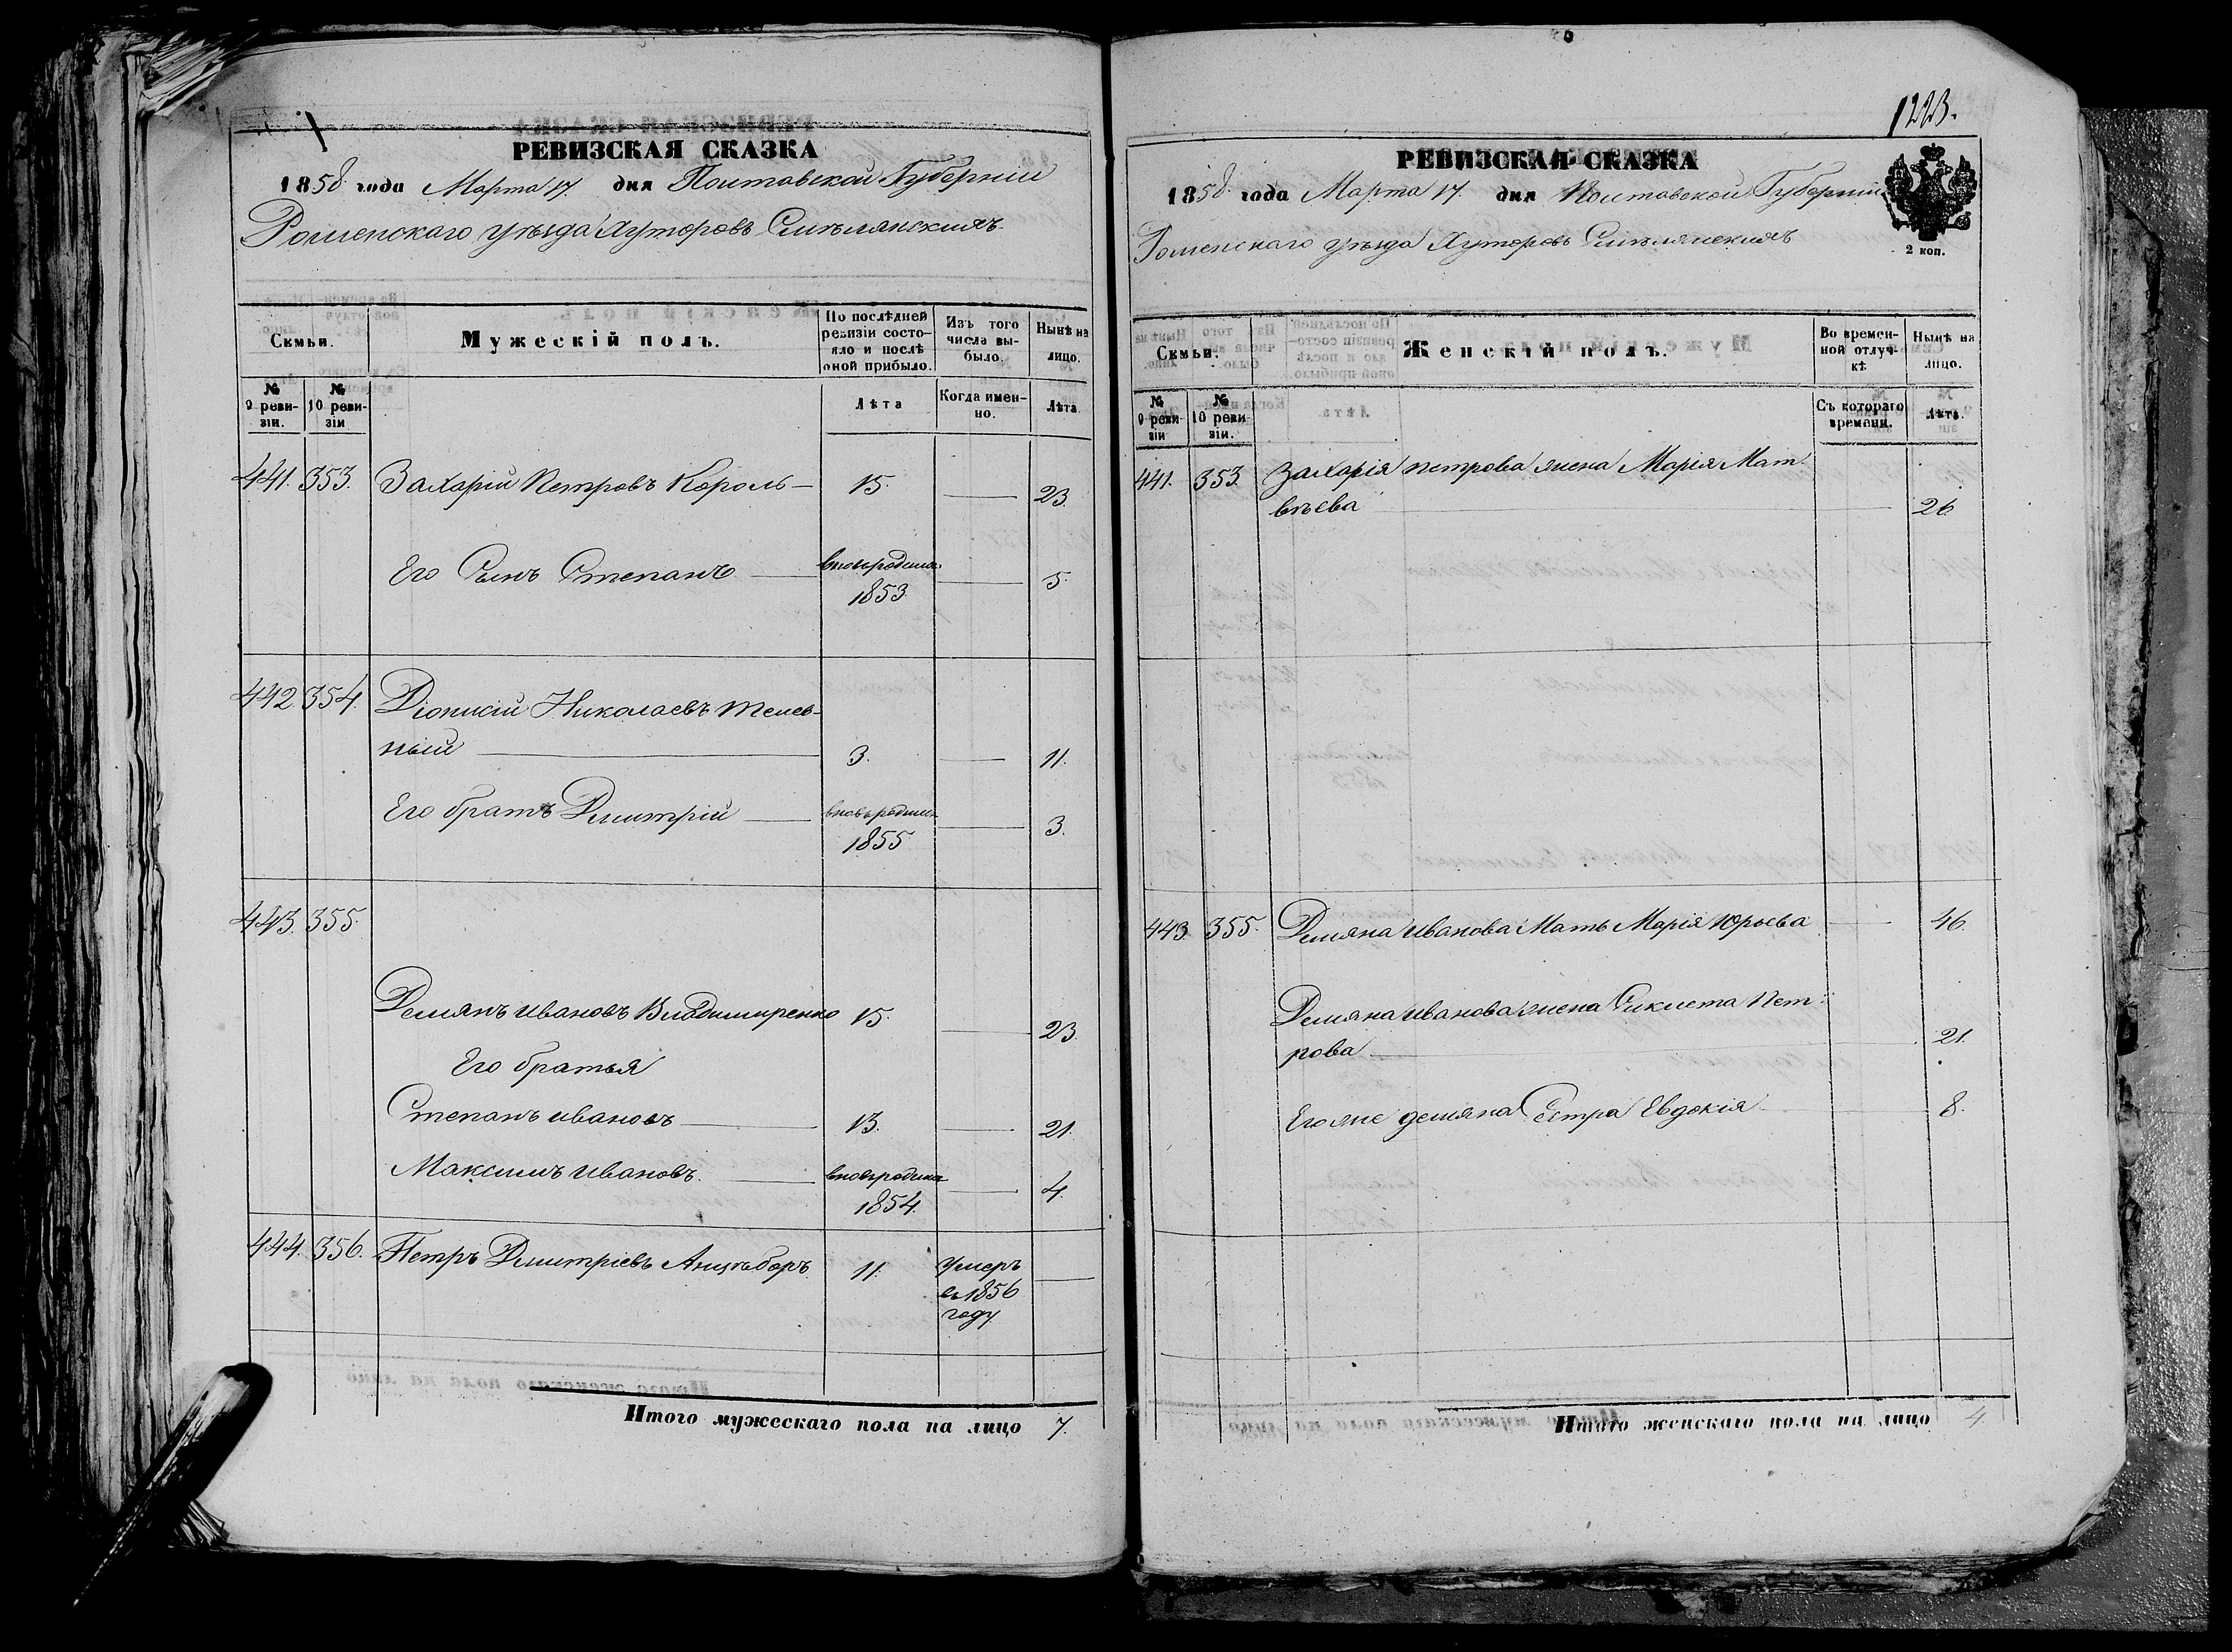 РЕВИЗСКАЯ СКАЗКА
1858 года Марта 17. дня Полтавской Губерніи
Роменскаго уѣзда Хуторовъ Смѣлянскихъ
Семьи.
Мужескій полъ.
По послѣдней ревизіи состояло и послѣ оной прибыло.
Изъ того числа выбыло.
Нынѣ на лицо.
№ 9 ревизіи.
№ 10 ревизіи
Лѣта
Когда именно.
Лѣта.
441. 353. Захарій Петровъ Король 15. 23.
Его Сынъ Степанъ вновьродился 1853. 5.
442 354. Діонисій Николаевъ Телев-
ный 3. 11.
Его братъ Дмитрій вновьродился 1855 3.
443. 355.
Демянъ Ивановъ Владимиренко 15. 23.
Его братья
Степанъ Ивановъ 13. 21.
Максимъ Ивановъ. вновьродился 1854. 4.
444. 356. Петръ Дмитріевъ 11. умеръ
въ 1856
году
Итого мужескаго пола на лицо 7.
1223.
РЕВИЗСКАЯ СКАЗКА
1858 года Марта 17. дня Полтавской Губерніи
Роменскаго уѣзда Хуторовъ Смѣлянскихъ
2 коп.
Семьи.
Женскій полъ.
Во временной отлучкѣ
Нынѣ на лицо.
№ 9 ревизіи
№ 10 ревизіи.
Съ котораго времени.
Лѣта.
441. 353. Захарія Петрова жена Марія Мат-
вѣева 26
443. 355. Демяна Иванова Мать Марія Юрьева 46.
Демяна Иванова жена Пет-
рова 21.
Его же демяна Сестра Евдокія 8.
Итого женскаго пола на лицо 4.